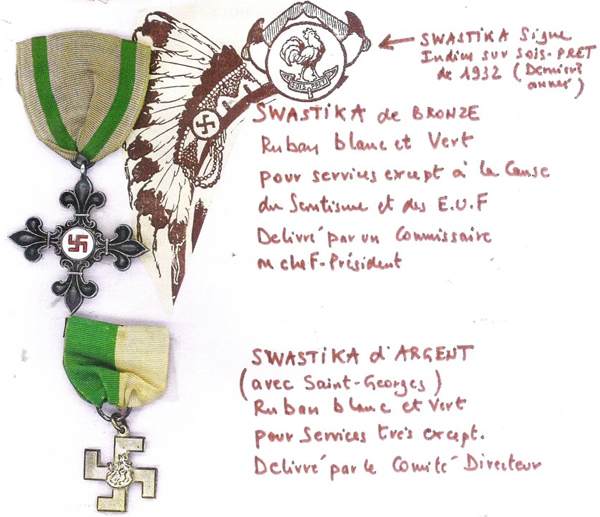 SOIS-PRET
SWASTIKA Signe
Indien sur SOIS-PRET
de 1932 (Dernière
année)
SWASTIKA de BRONZE
Ruban blanc et Vert
pour services except à la Cause
du Scoutisme et des E.U.F
Delivré par un Commissaire
ou cheF-Président
SWASTIKA d'ARGENT
(avec Saint-Georges)
Ruban blanc et Vert
pour Services très except.
Delivré par le Comité Directeur